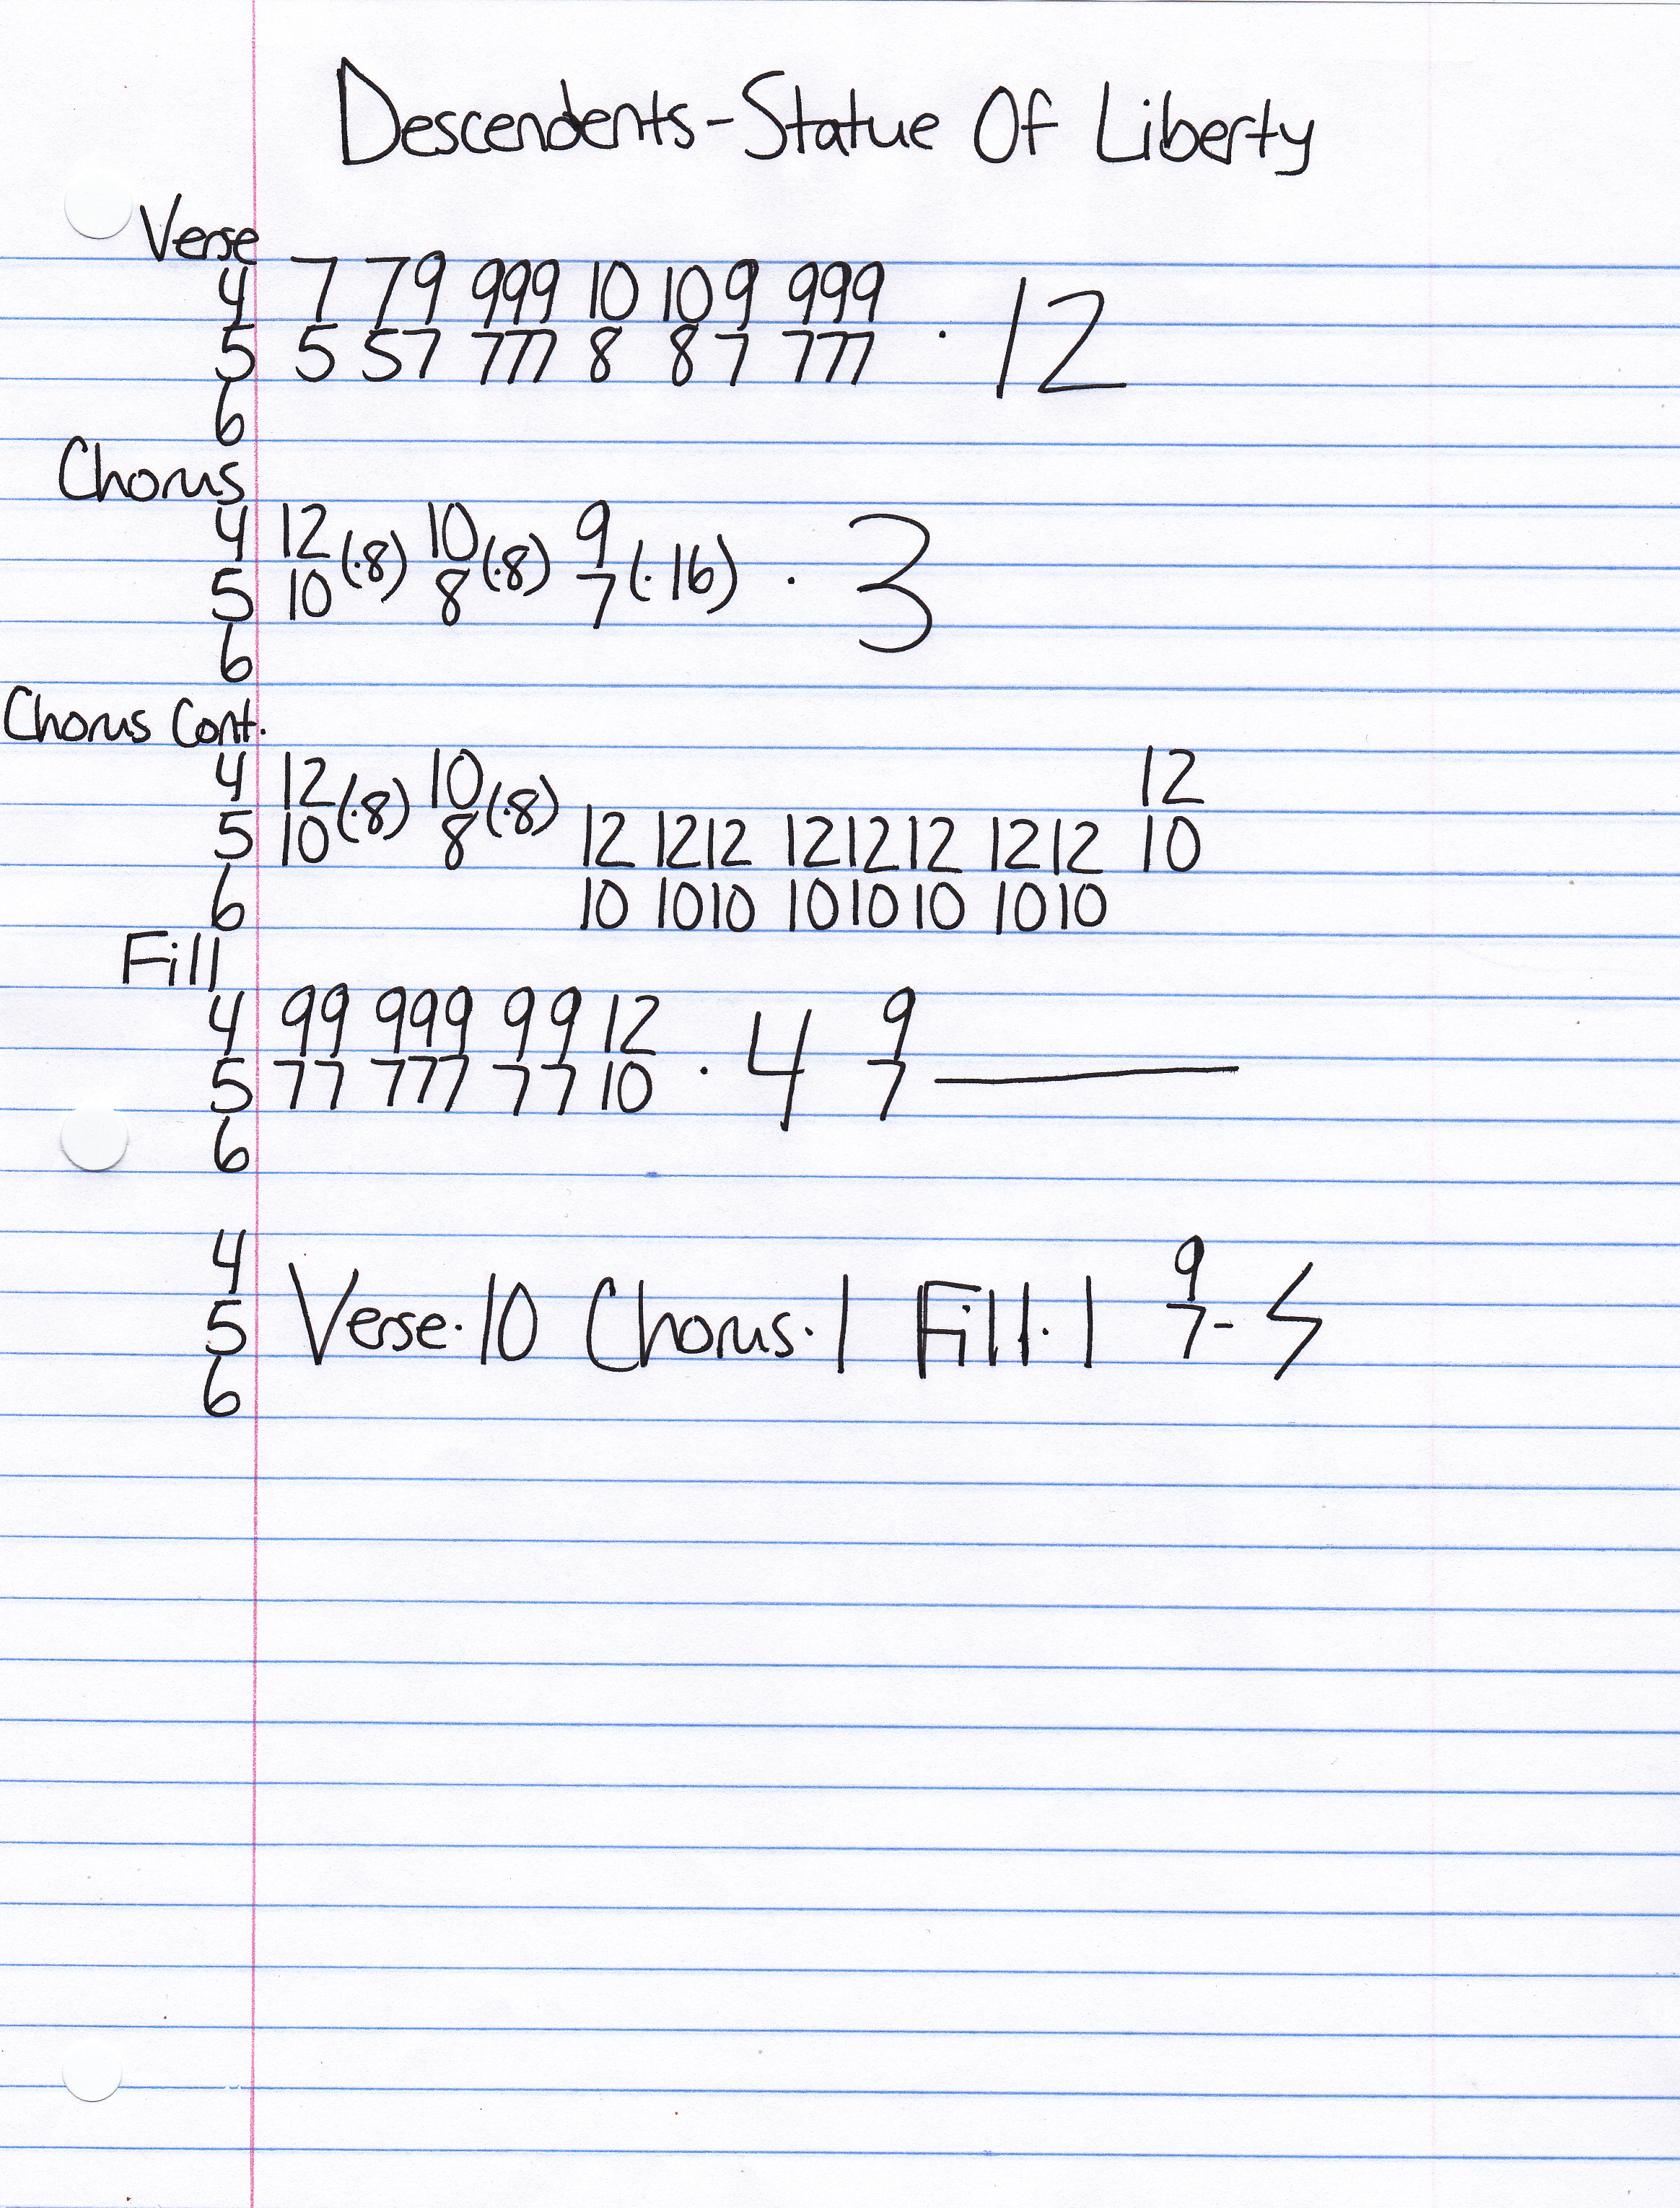 Descendents-Statue Of Liberty
Verse
4 7 79 999 10 109 999
5 5 57 777 8 87 777 · 12
6
Chorus
4 12(·8) 10(·8) 9(·16) · 3
5 10 8 7
6
Chorus Cont.
4 12(·8) 10(·8) 12
5 10 8 12 1212 121212 1212 10
6 10 1010 101010 1010
Fill
4 99 999 99 12 · 4 9
5 77 777 77 10 7
6
4 9
5 Verse·10 Chorus·1 Fill·1 7-
6